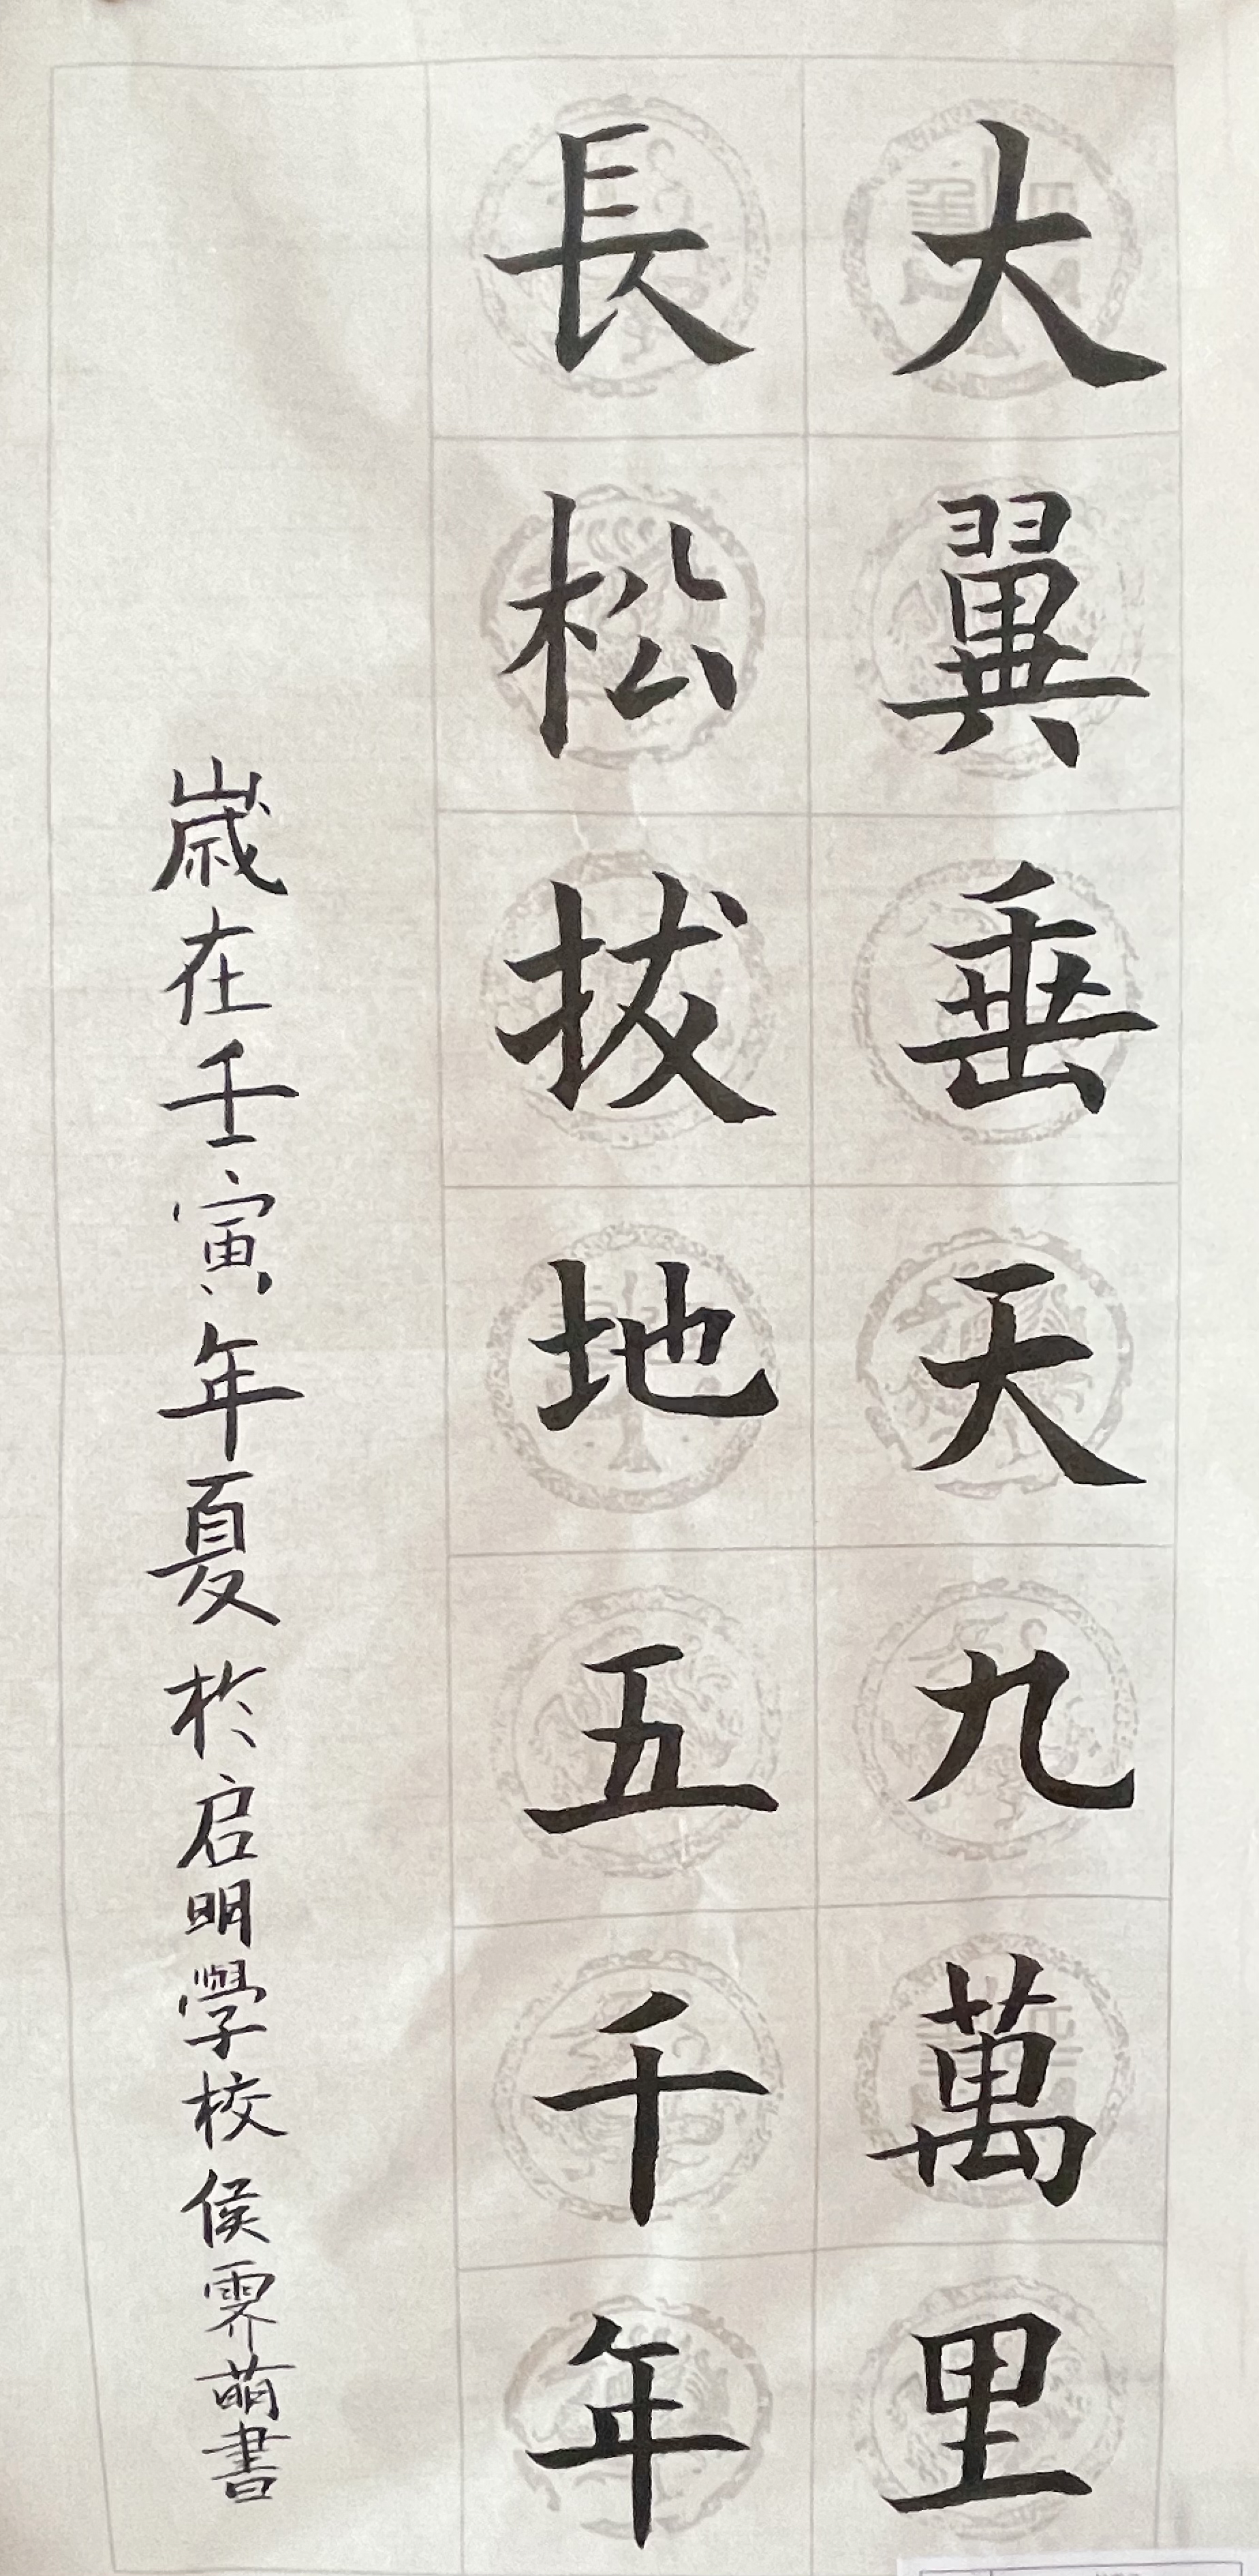 大翼垂天九萬里
長松拔地五千年
歲在壬寅年夏於启明學校侯霁萌書